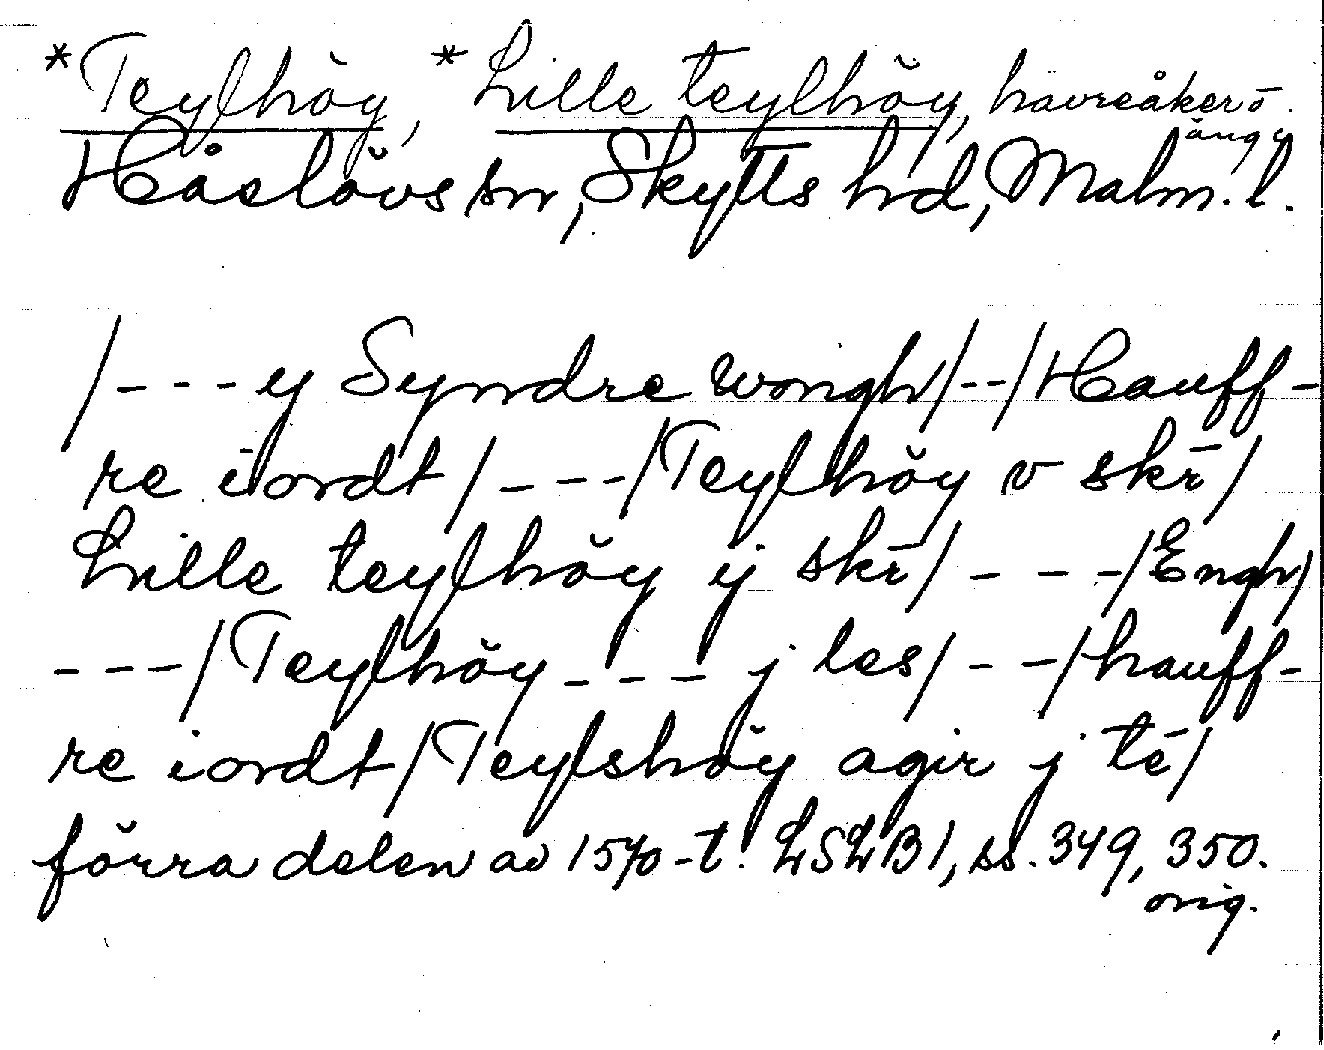 *Teylhöy, *Lille teylhöy, havreåker o.
äng i
Håslövs sn, Skytts hd, Malm. l.
/---y Syndre wongh/--/Hauff-
re iordt/---/Teylhöy v skr̄/
Lille teylhöy ij skr̄/---/Engh/
---/Teylhöy---j les/--/hauff-
re iordt/Teylshöy agir j tē/
förra delen av 1570-t. LSLB1, ss. 349, 350.
orig.